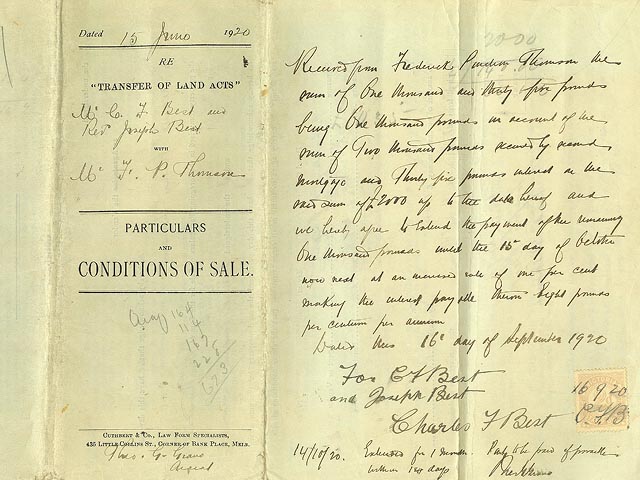 Dated 15 June 1920
RE
"TRANSFER OF LAND ACTS"
Mr C. F Best and
Revd Joseph Best
WITH
Mr F. P. Thomson
PARTICULARS
AND
CONDITIONS OF SALE.
164
114
167
228
673
CUTHBERT & Co., LAW FORM SPECIALISTS,
435 LITTLE COLLINS ST., CORNER OF BANK PLACE, MELB.
2000
Received from Frederick Thomson the
sum of One thousand and thirty five pounds
being One thousand pounds on account of the
sum of Two thousand pounds secured by
mortgage and Thirty six pounds interest on the
said sum of £2000 up to the date hereof and
we hereby agree to extend the payment of the remaining
One thousand pounds until the 15th day of October
now next at an increased rate of one per cent
making the interest payable thereon Eight pounds
per centum per annum
Dated this 16th day of September 1920
For C F Best
and Joseph Best
Charles F Best
16 9 20
CFB
14/10/20. Extended for 1 month.
within 14 days